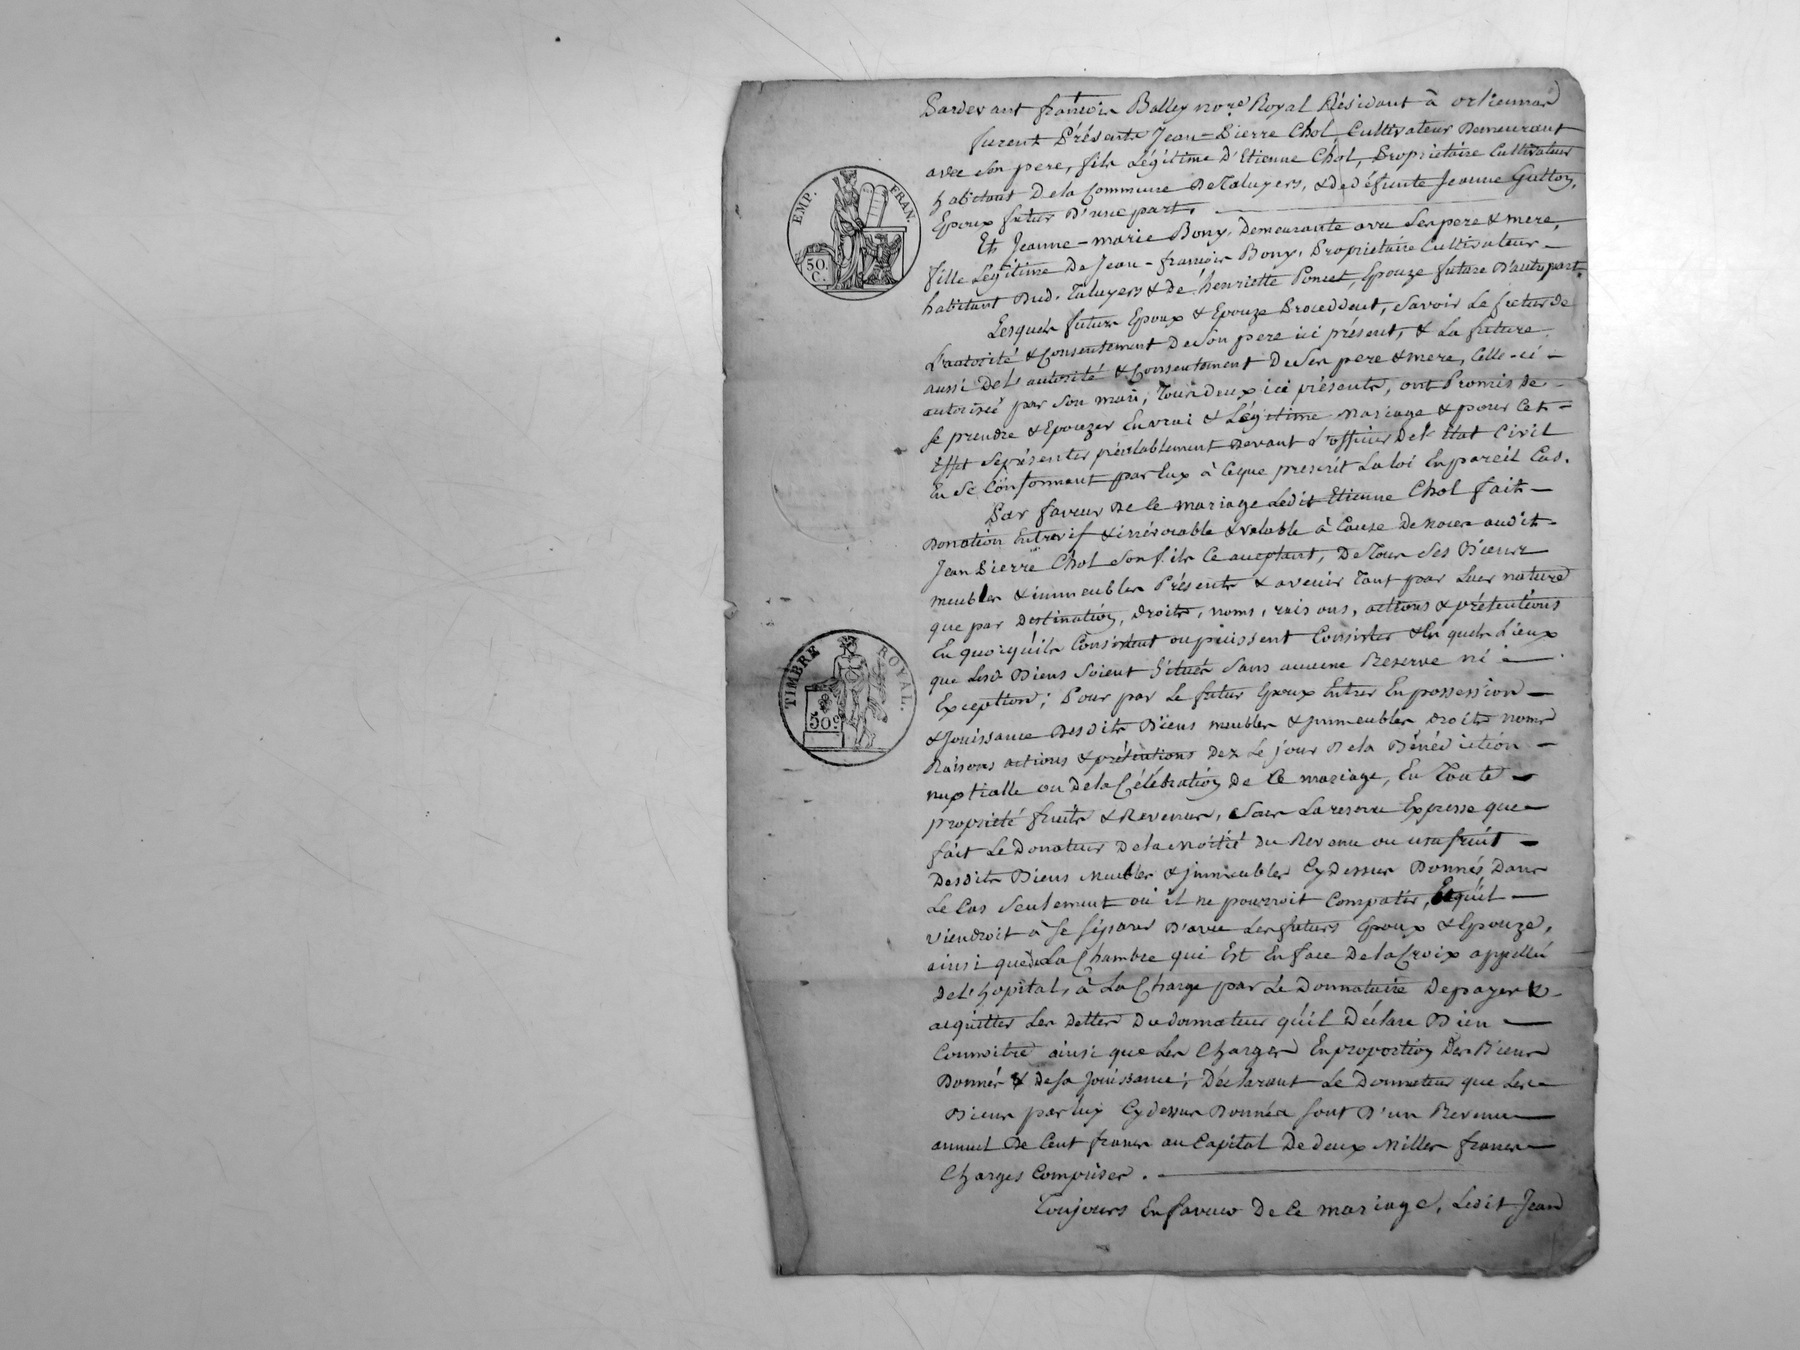 EMP. FRAN.
50.
C.
TIMBRE ROYAL.
50c
Pardevant françois Balley no.re Royal Résidant à orlienna
furent Présents Jean-Pierre Chol, Cultivateur Demeurant
avec son pere, fils Légitime D'Etienne Chol, Proprietaire Cultivateur
habitant De la Commune De Taluyers, & de défunte Jeanne Guttoy,
Epoux futur D'une part.
Et Jeanne-marie Bony, Demeurante avec ses pere & mere,
fille Légitime De Jean-françois Bony, Proprietaire Cultivateur
habitant Dud. Taluyers & de henriette Poncet, Epouze future D'autre part.
Lesquels futurs Epoux & Epouze Proceddent, savoir Le futur de
L'autorité & Consentement De son pere ici présent, & La future
aussi De l'autorité & Consentement De ses pere & mere, Celle-ci
autorisée par son mari, Tous Deux ici présents, ont Promis de
se prendre & Epouzer En vrai & Légitime mariage & pour Cet
Effet se présenter préalablement Devant L'officier De l'Etat Civil
En se Conformant par Eux à Ceque prescrit La loi En pareil Cas.
Par faveur De Ce mariage Ledit Etienne Chol fait
Donation Entrevif & irrévocable & valable à Cause De noces audit
Jean Pierre Chol son fils Ce acceptant, De Tous Ses Biens
meubles & immeubles Présents & avenir Tant par Leur nature
que par Destination, Droits, noms, raisons, actions & prétentions
En quoi qu'ils Consistent ou puissent Consister & En quels Lieux
que Lesd. Biens soient situés Sans aucune Reserve ni
Exception; Pour par Le futur Epoux Entrer En possession
& Jouissance Desdits Biens meubles & jmmeubles Droits noms
Raisons actions & prétentions Dez Le jour De la Bénédiction
nuptialle ou De la Célébration de Ce mariage, En Toute
propriété fruits & Revenus, Sous La reserve Expresse que
fait Le Donateur De la moitié Du Revenu ou usufruit
Desdits Biens meubles & jmmeubles Cydessus Donnés Dans
Le Cas seulement où il ne pourroit Compatir, Et qu'il
viendroit à se séparer D'avec Les futurs Epoux & Epouze,
ainsi que de La Chambre qui Est En face De la Croix appellée
De l'hopital, à La Charge par Le Donnataire De payer &
acquitter Les Dettes Du donnateur qu'il Déclare Bien
Connoitre ainsi que Les Charges En proportion Des Biens
Donnés & de sa Jouissance; Déclarant Le Donnateur que Les
Biens par luy Cydessus Donnés sont D'un Revenu
annuel De Cent francs au Capital De deux Milles francs
Charges Comprises.
Toujours En faveur De Ce mariage, Ledit Jean